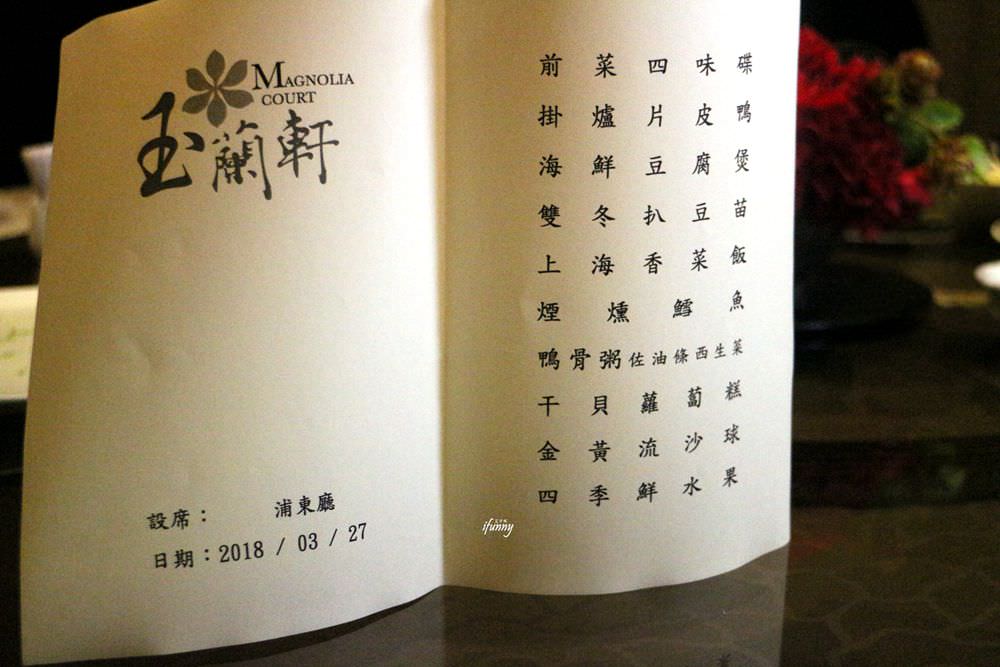 MAGNOLIA
COURT
玉蘭軒
設席： 浦東廳
日期：2018 / 03 / 27
前菜四味碟
掛爐片皮鴨
海鮮豆腐煲
雙冬扒豆苗
上海香菜飯
煙燻鱈魚
鴨骨粥佐油條西生菜
干貝蘿蔔糕
金黃流沙球
四季鮮水果
ifunny